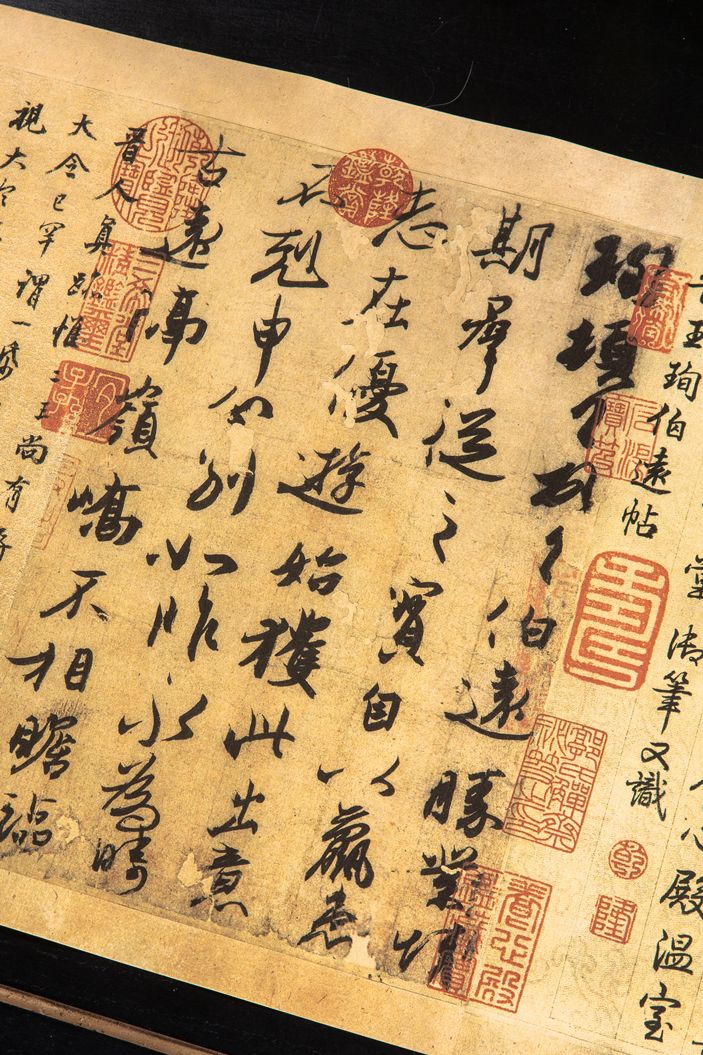 心殿溫室
堂御筆又識
王珣伯遠帖
珣頓首頓首伯遠勝業情
期羣從之寶自以羸患
志在優遊始獲此出意
不剋申分別如昨永為疇
古遠隔嶺嶠不相瞻臨
晉人真跡惟二王尚有存
大令已罕謂一紙
視大令